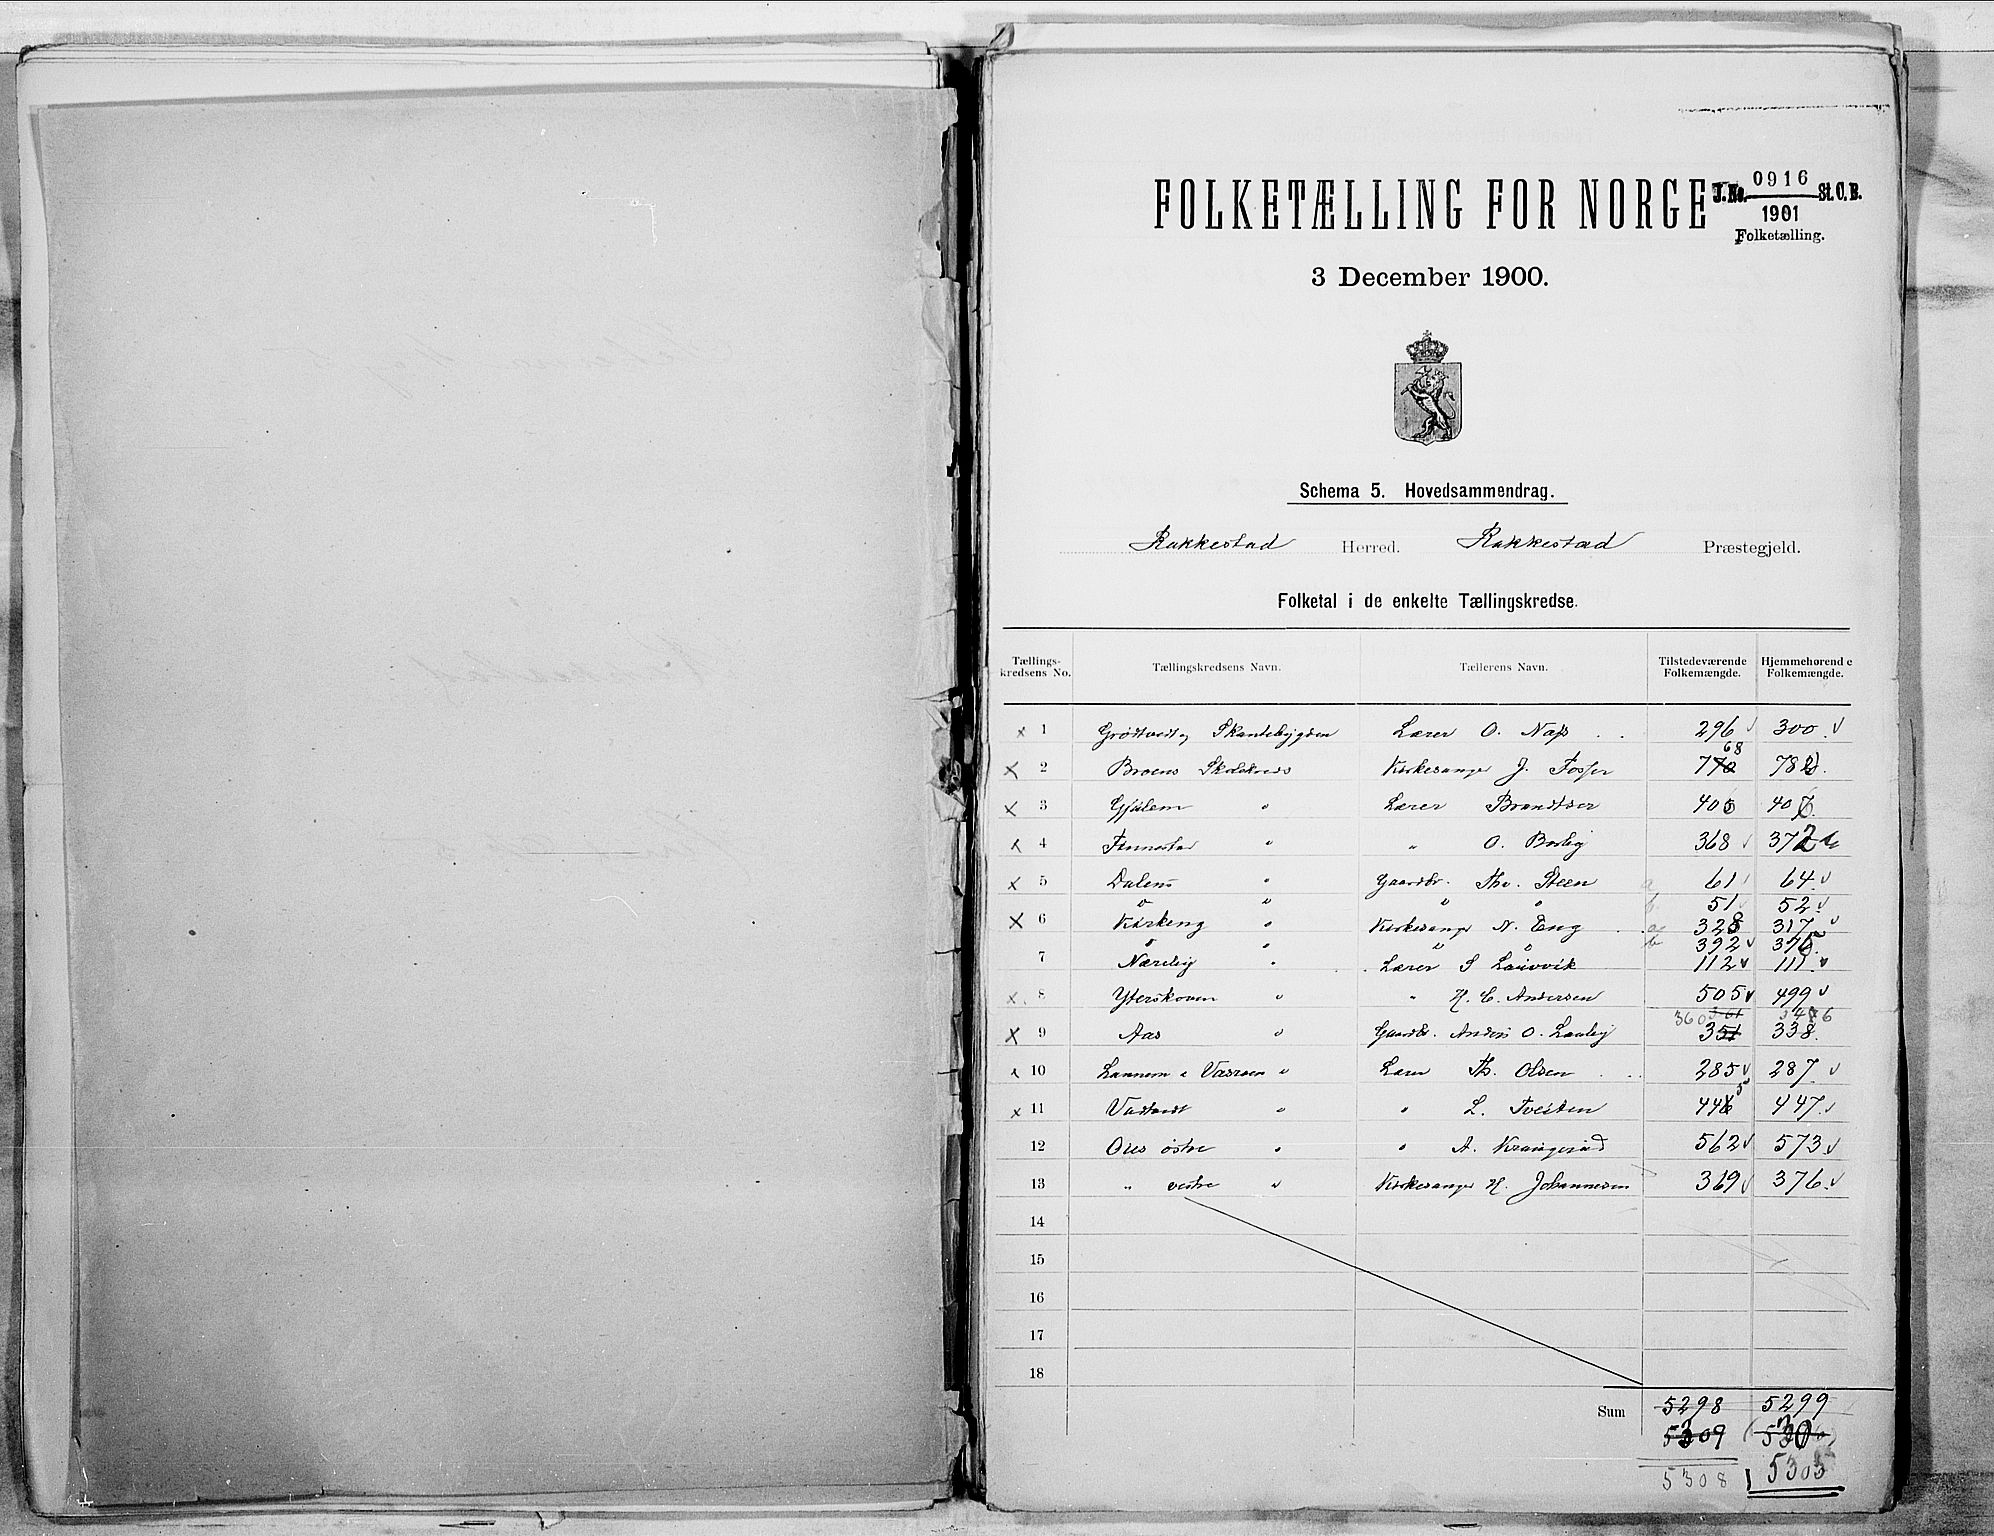 FOLKETÆLLING FOR NORGE
J.No. 0916 St.C.B.
1901
Folketælling.
3 December 1900.
Schema 5. Hovedsammendrag.
Rakkestad Herred. Rakkestad Præstegjeld.
Folketal i de enkelte Tællingskredse.
Tællings-kredsens No. Tællingskredsens Navn. Tællerens Navn. Tilstedeværende Folkemængde. Hjemmehørende Folkemængde.
1 Grødtvedt og Skantebygden Lærer O. Næss 296 300
2 Broens Skolekreds Kirkesanger J. Fosser 68 770
3 Gjulem " Lærer 405
4 Finnestad " " O. 368 372
5 Dalens " Gaardbr. Th. Steen a 61 64
" " " " b 51 52
6 Kirkeng " Kirkesanger N. Eng a 328 317
" " " " b 392
7 Næreby " Lærer S Lauvvik 112 111
8 Ytterskoven " " H. C. Andersen 505 499
360 361
9 Aas " Gaardbr. Anders O. 351 338
10 Lannem " Lærer Th. Olsen 285 287
11 " " L. Tveiten 446 5 447
12 Oses østre " " A. 562 573
13 " vestre " Kirkesanger H. Johannesen 369 376
14
15
16
17
18
Sum 5298 5299
5309
5308 5305